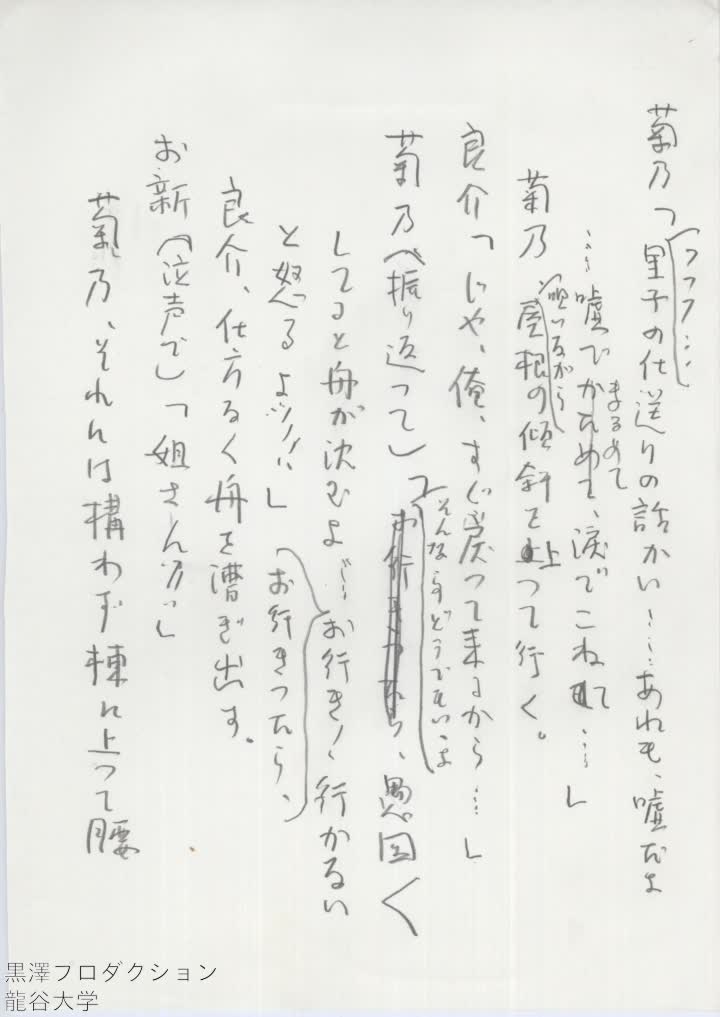 菊乃「フフフ……
里子の仕送りの話かい……あれも、嘘だよ
……嘘でかためて、涙でこねて……」
まるめて
菊乃
屋根の傾斜を上って行く。
良介「じや、俺、すぐ戻って来るから……」
そんなら、どうでもいいよ
菊乃(振り返って)「
、愚図く
してると舟が沈むよ……お行き！、行かない
と怒るよッ！！」
お行きったら、
良介、仕方なく舟を漕ぎ出す。
お新(泣声で)「姐さんッ」
菊乃、それには構わず棟に上って腰
黒澤プロダクション
龍谷大学